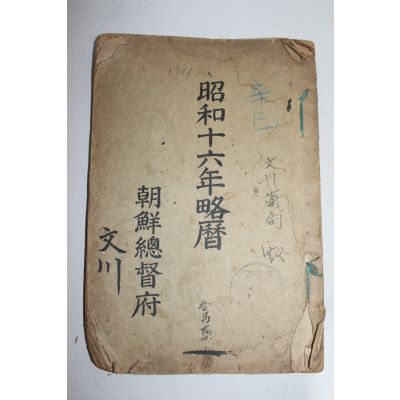 辛巳
文川薬局
1941
昭和十六年略暦
朝鮮總督府
文川